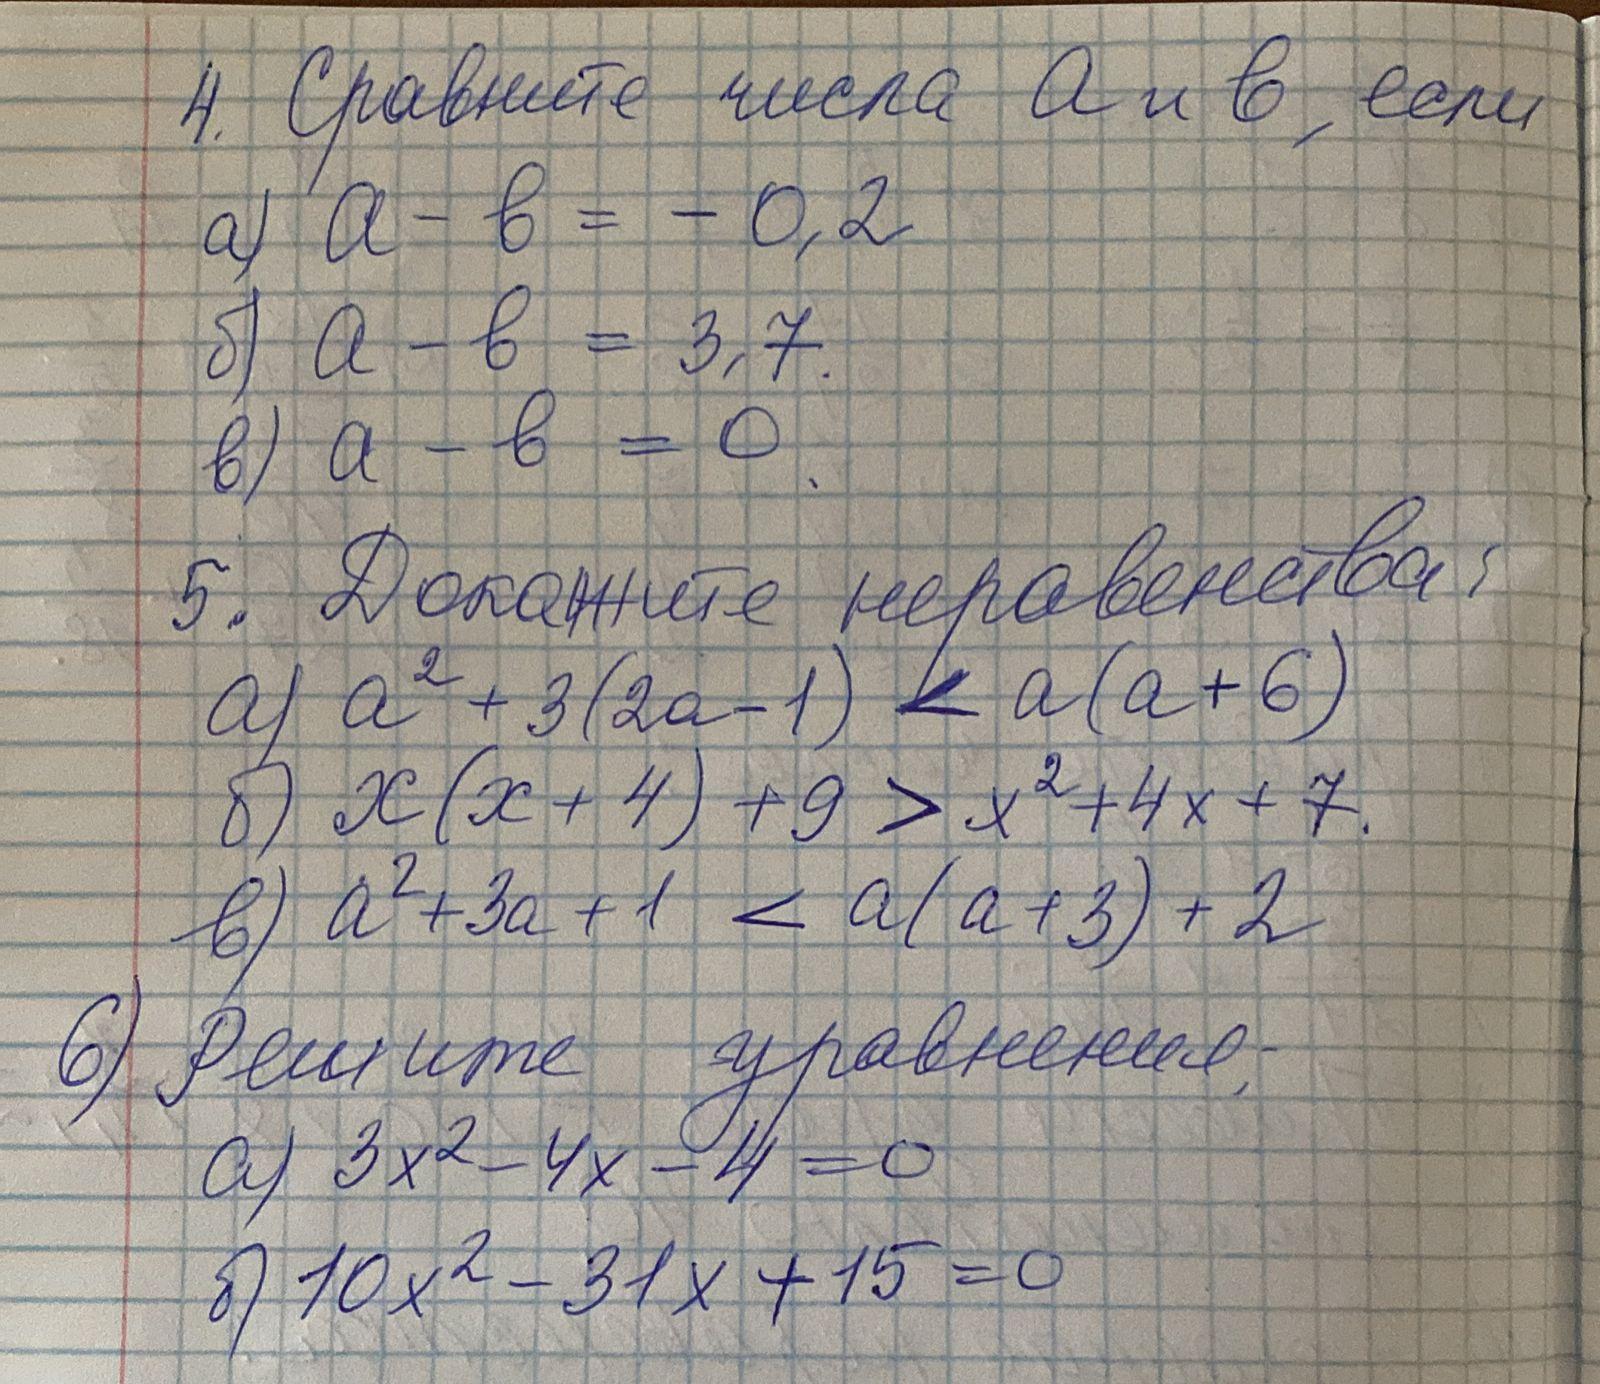 4. Сравните числа a и в, если
а) a - в = - 0,2
б) a - в = 3,7.
в) a - в = 0.
5. Докажите неравенства:
а) a² + 3(2a - 1) < a(a + 6)
б) x(x + 4) + 9 > x² + 4x + 7.
в) a² + 3a + 1 < a(a + 3) + 2
6) Решите уравнения;
а) 3x² - 4x - 4 = 0
б) 10x² - 31x + 15 = 0